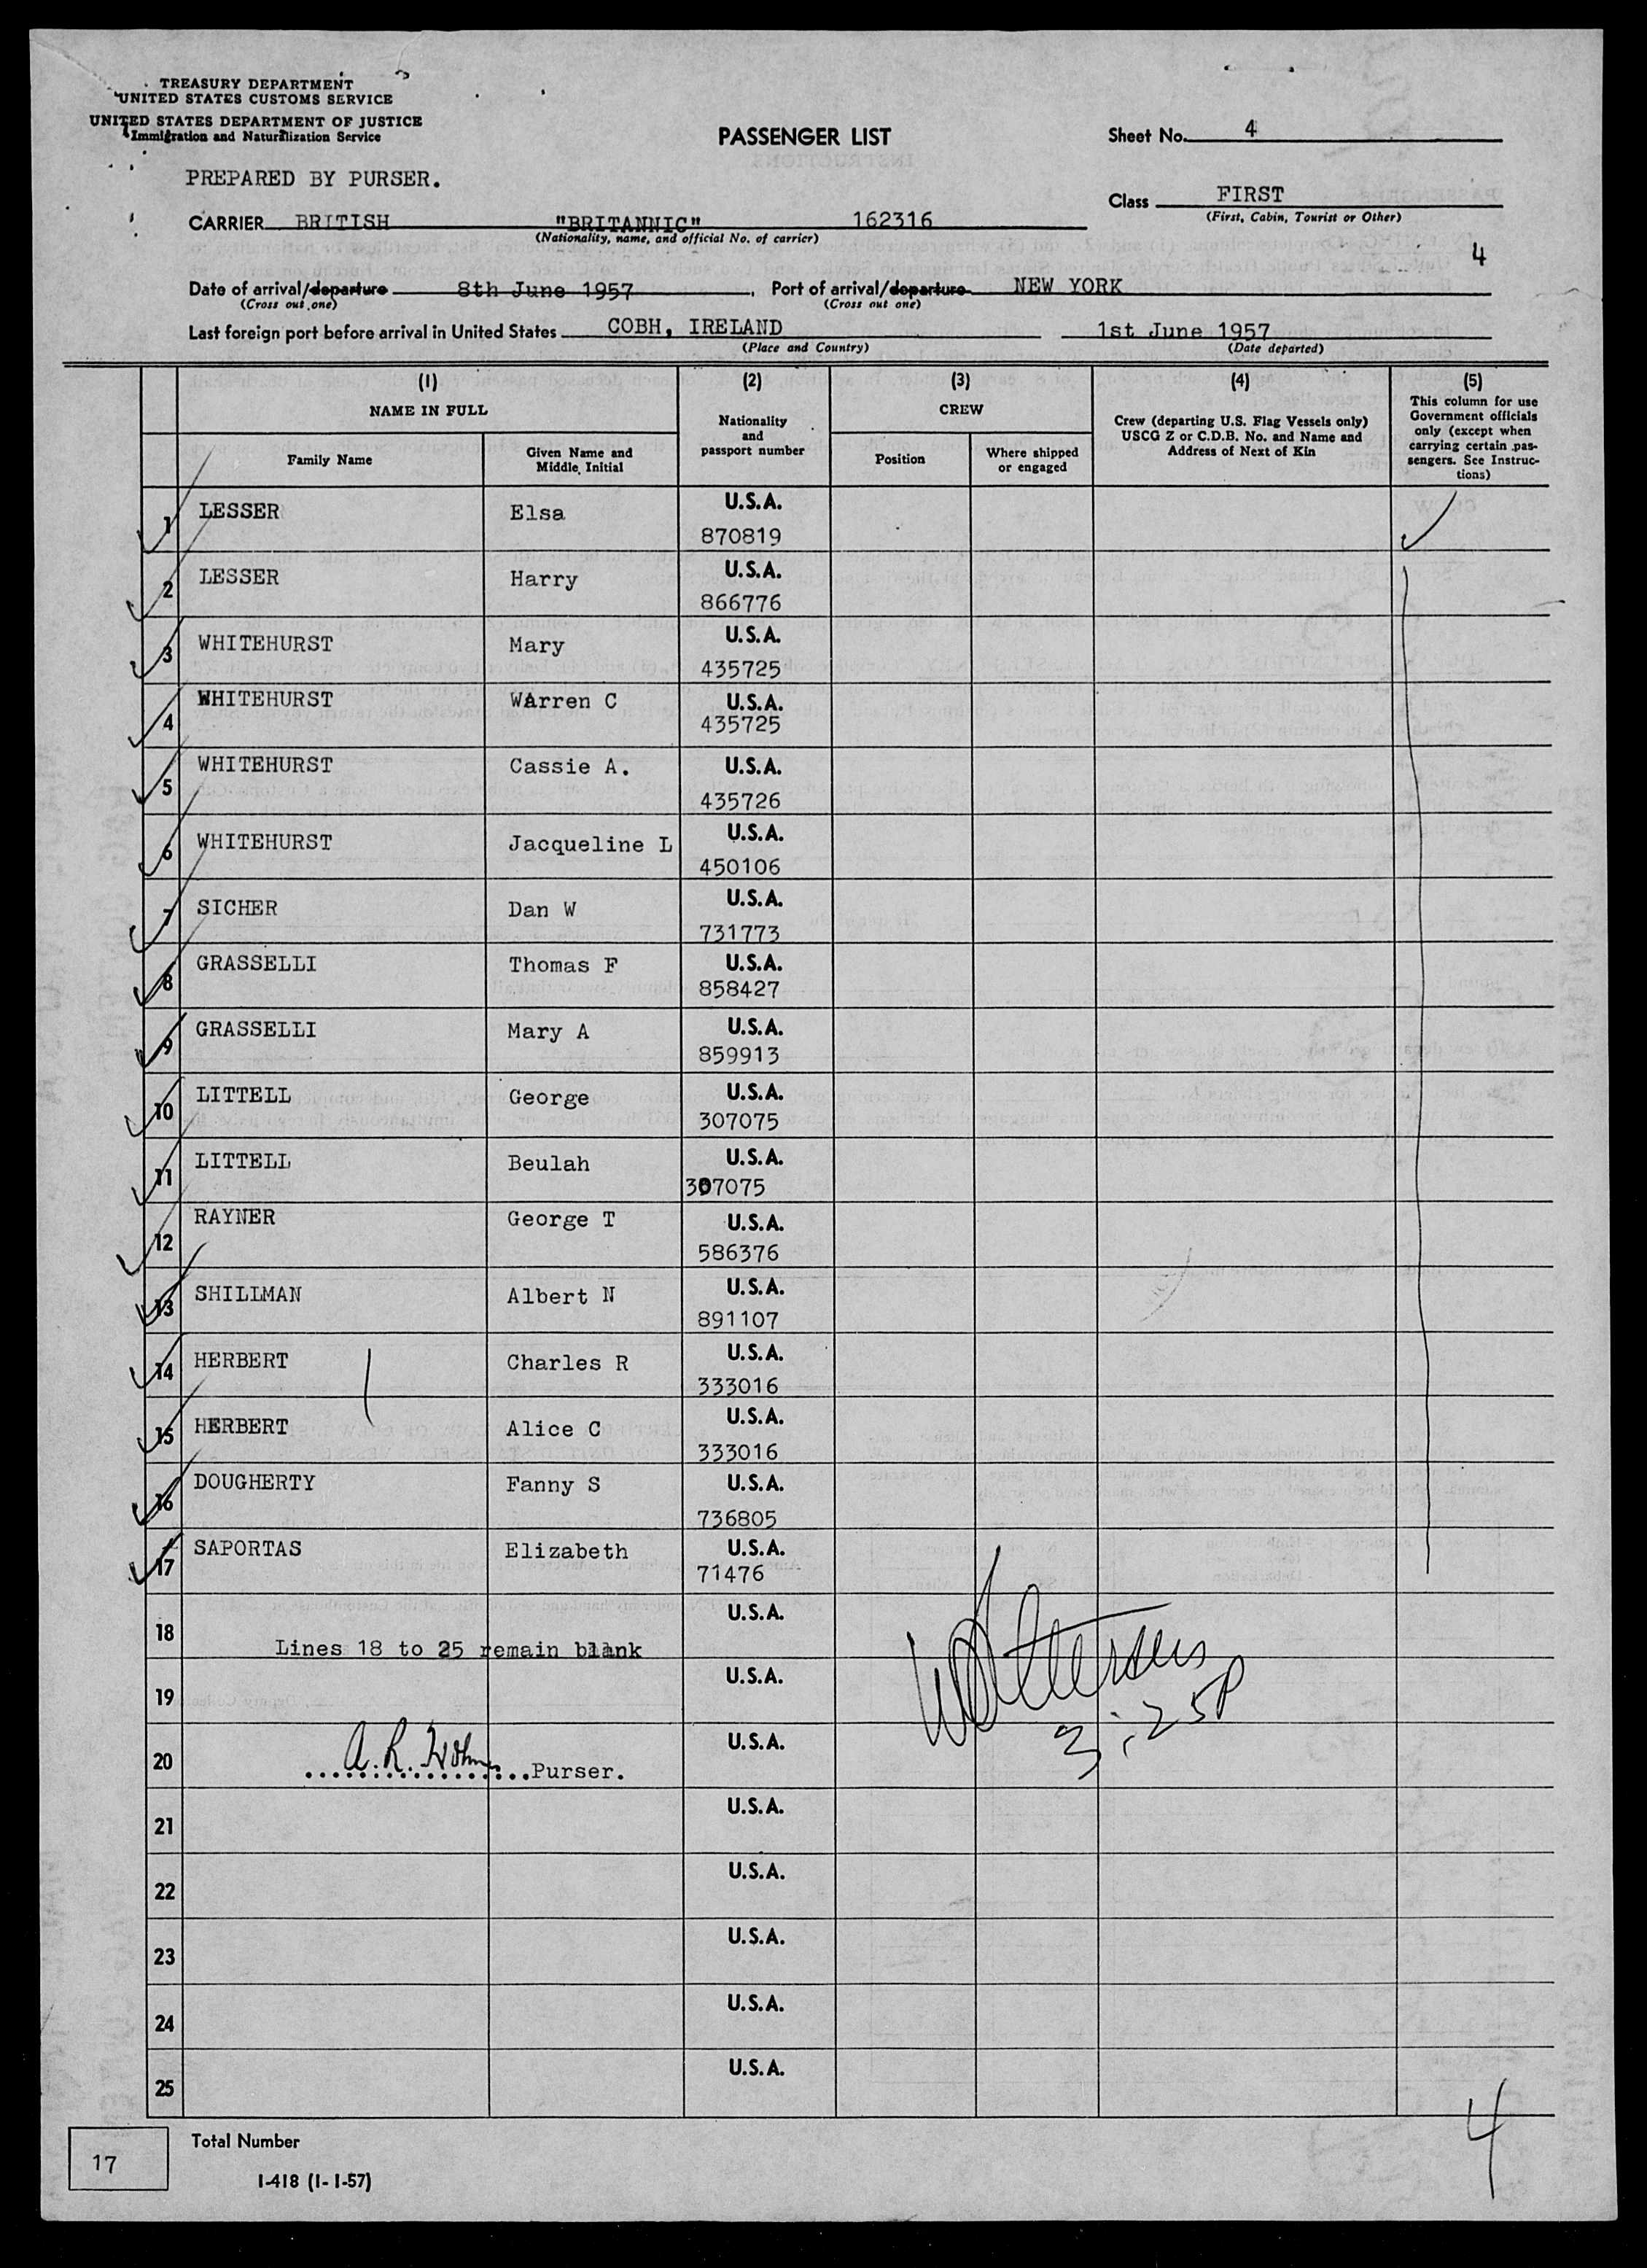 TREASURY DEPARTMENT
UNITED STATES CUSTOMS SERVICE
UNITED STATES DEPARTMENT OF JUSTICE
Immigration and Naturalization Service
PASSENGER LIST
Sheet No. 4
PREPARED BY PURSER.
Class FIRST
(First, Cabin, Tourist or Other)
CARRIER BRITISH "BRITANNIC" 162316
(Nationality, name, and official No. of carrier)
4
Date of arrival/departure 8th June 1957, Port of arrival/departure NEW YORK
(Cross out one) (Cross out one)
Last foreign port before arrival in United States COBH, IRELAND 1st June 1957
(Place and Country) (Date departed)
(1) (2) (3) (4) (5)
NAME IN FULL
Family Name
Given Name and Middle Initial
Nationality and passport number
CREW
Position
Where shipped or engaged
Crew (departing U.S. Flag Vessels only)
USCG Z or C.D.B. No. and Name and
Address of Next of Kin
This column for use
Government officials
only (except when
carrying certain pas-
sengers. See Instruc-
tions)
1 LESSER Elsa U.S.A. 870819
2 LESSER Harry U.S.A. 866776
3 WHITEHURST Mary U.S.A. 435725
4 WHITEHURST WArren C U.S.A. 435725
5 WHITEHURST Cassie A. U.S.A. 435726
6 WHITEHURST Jacqueline L U.S.A. 450106
7 SICHER Dan W U.S.A. 731773
8 GRASSELLI Thomas F U.S.A. 858427
9 GRASSELLI Mary A U.S.A. 859913
10 LITTELL George U.S.A. 307075
11 LITTELL Beulah U.S.A. 307075
12 RAYNER George T U.S.A. 586376
13 SHILLMAN Albert N U.S.A. 891107
14 HERBERT Charles R U.S.A. 333016
15 HERBERT Alice C U.S.A. 333016
16 DOUGHERTY Fanny S U.S.A. 736805
17 SAPORTAS Elizabeth U.S.A. 71476
18 U.S.A.
Lines 18 to 25 remain blank
19 U.S.A.
3:25P
20 A. R. ..................Purser. U.S.A.
21 U.S.A.
22 U.S.A.
23 U.S.A.
24 U.S.A.
25 U.S.A.
4
17 Total Number
I-418 (1-1-57)